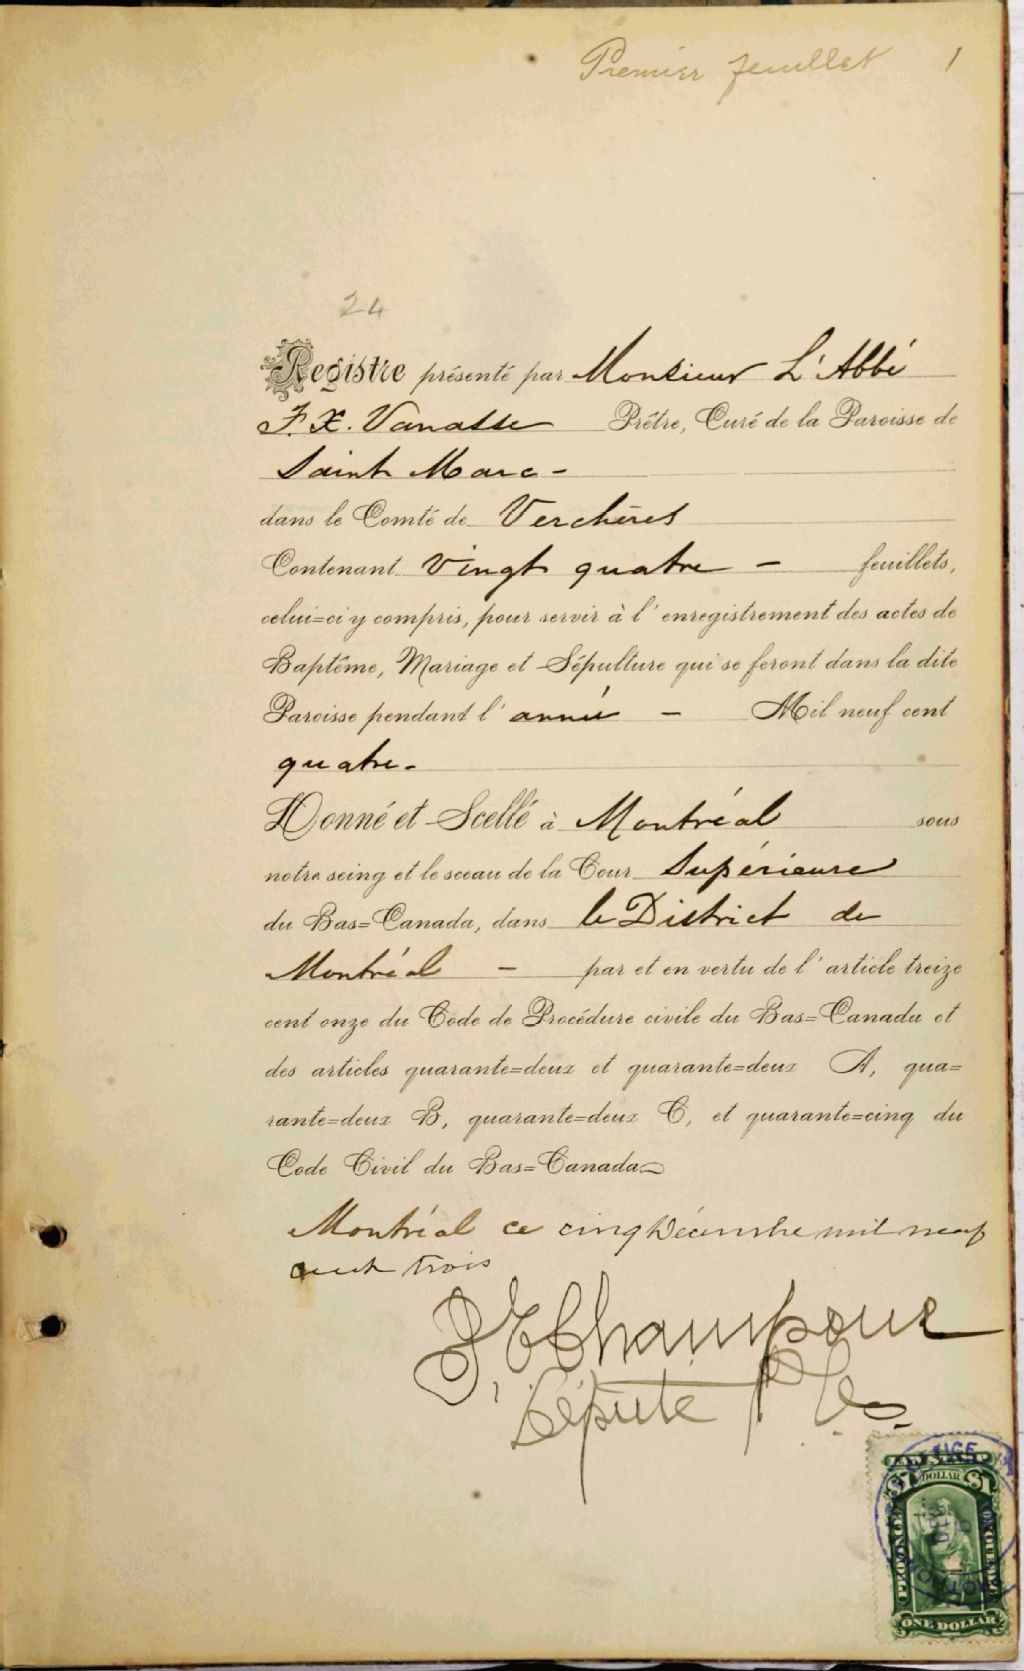 Premier feuillet 1
24
Registre présenté par Monsieur L'Abbé
F. X. Vanasse Prêtre, Curé de la Paroisse de
Saint Marc -
dans le Comté de Verchères
Contenant vingt quatre - feuillets,
celui=ci y compris, pour servir à l'enregistrement des actes de
Baptême, Mariage et Sépulture qui se feront dans la dite
Paroisse pendant l'année - Mil neuf cent
quatre.
Donné et Scellé à Montréal sous
notre seing et le sceau de la Cour Supérieure
du Bas=Canada, dans le District de
Montréal - par et en vertu de l'article treize
cent onze du Code de Procédure civile du Bas=Canada et
des articles quarante=deux et quarante=deux A, qua=
rante=deux B, quarante=deux C, et quarante=cinq du
Code Civil du Bas=Canada
Montréal ce cinq Décembre mil neuf
cent trois
Champoux
Député P. C. S.
DOLLAR
PROVINCE
ONE DOLLAR